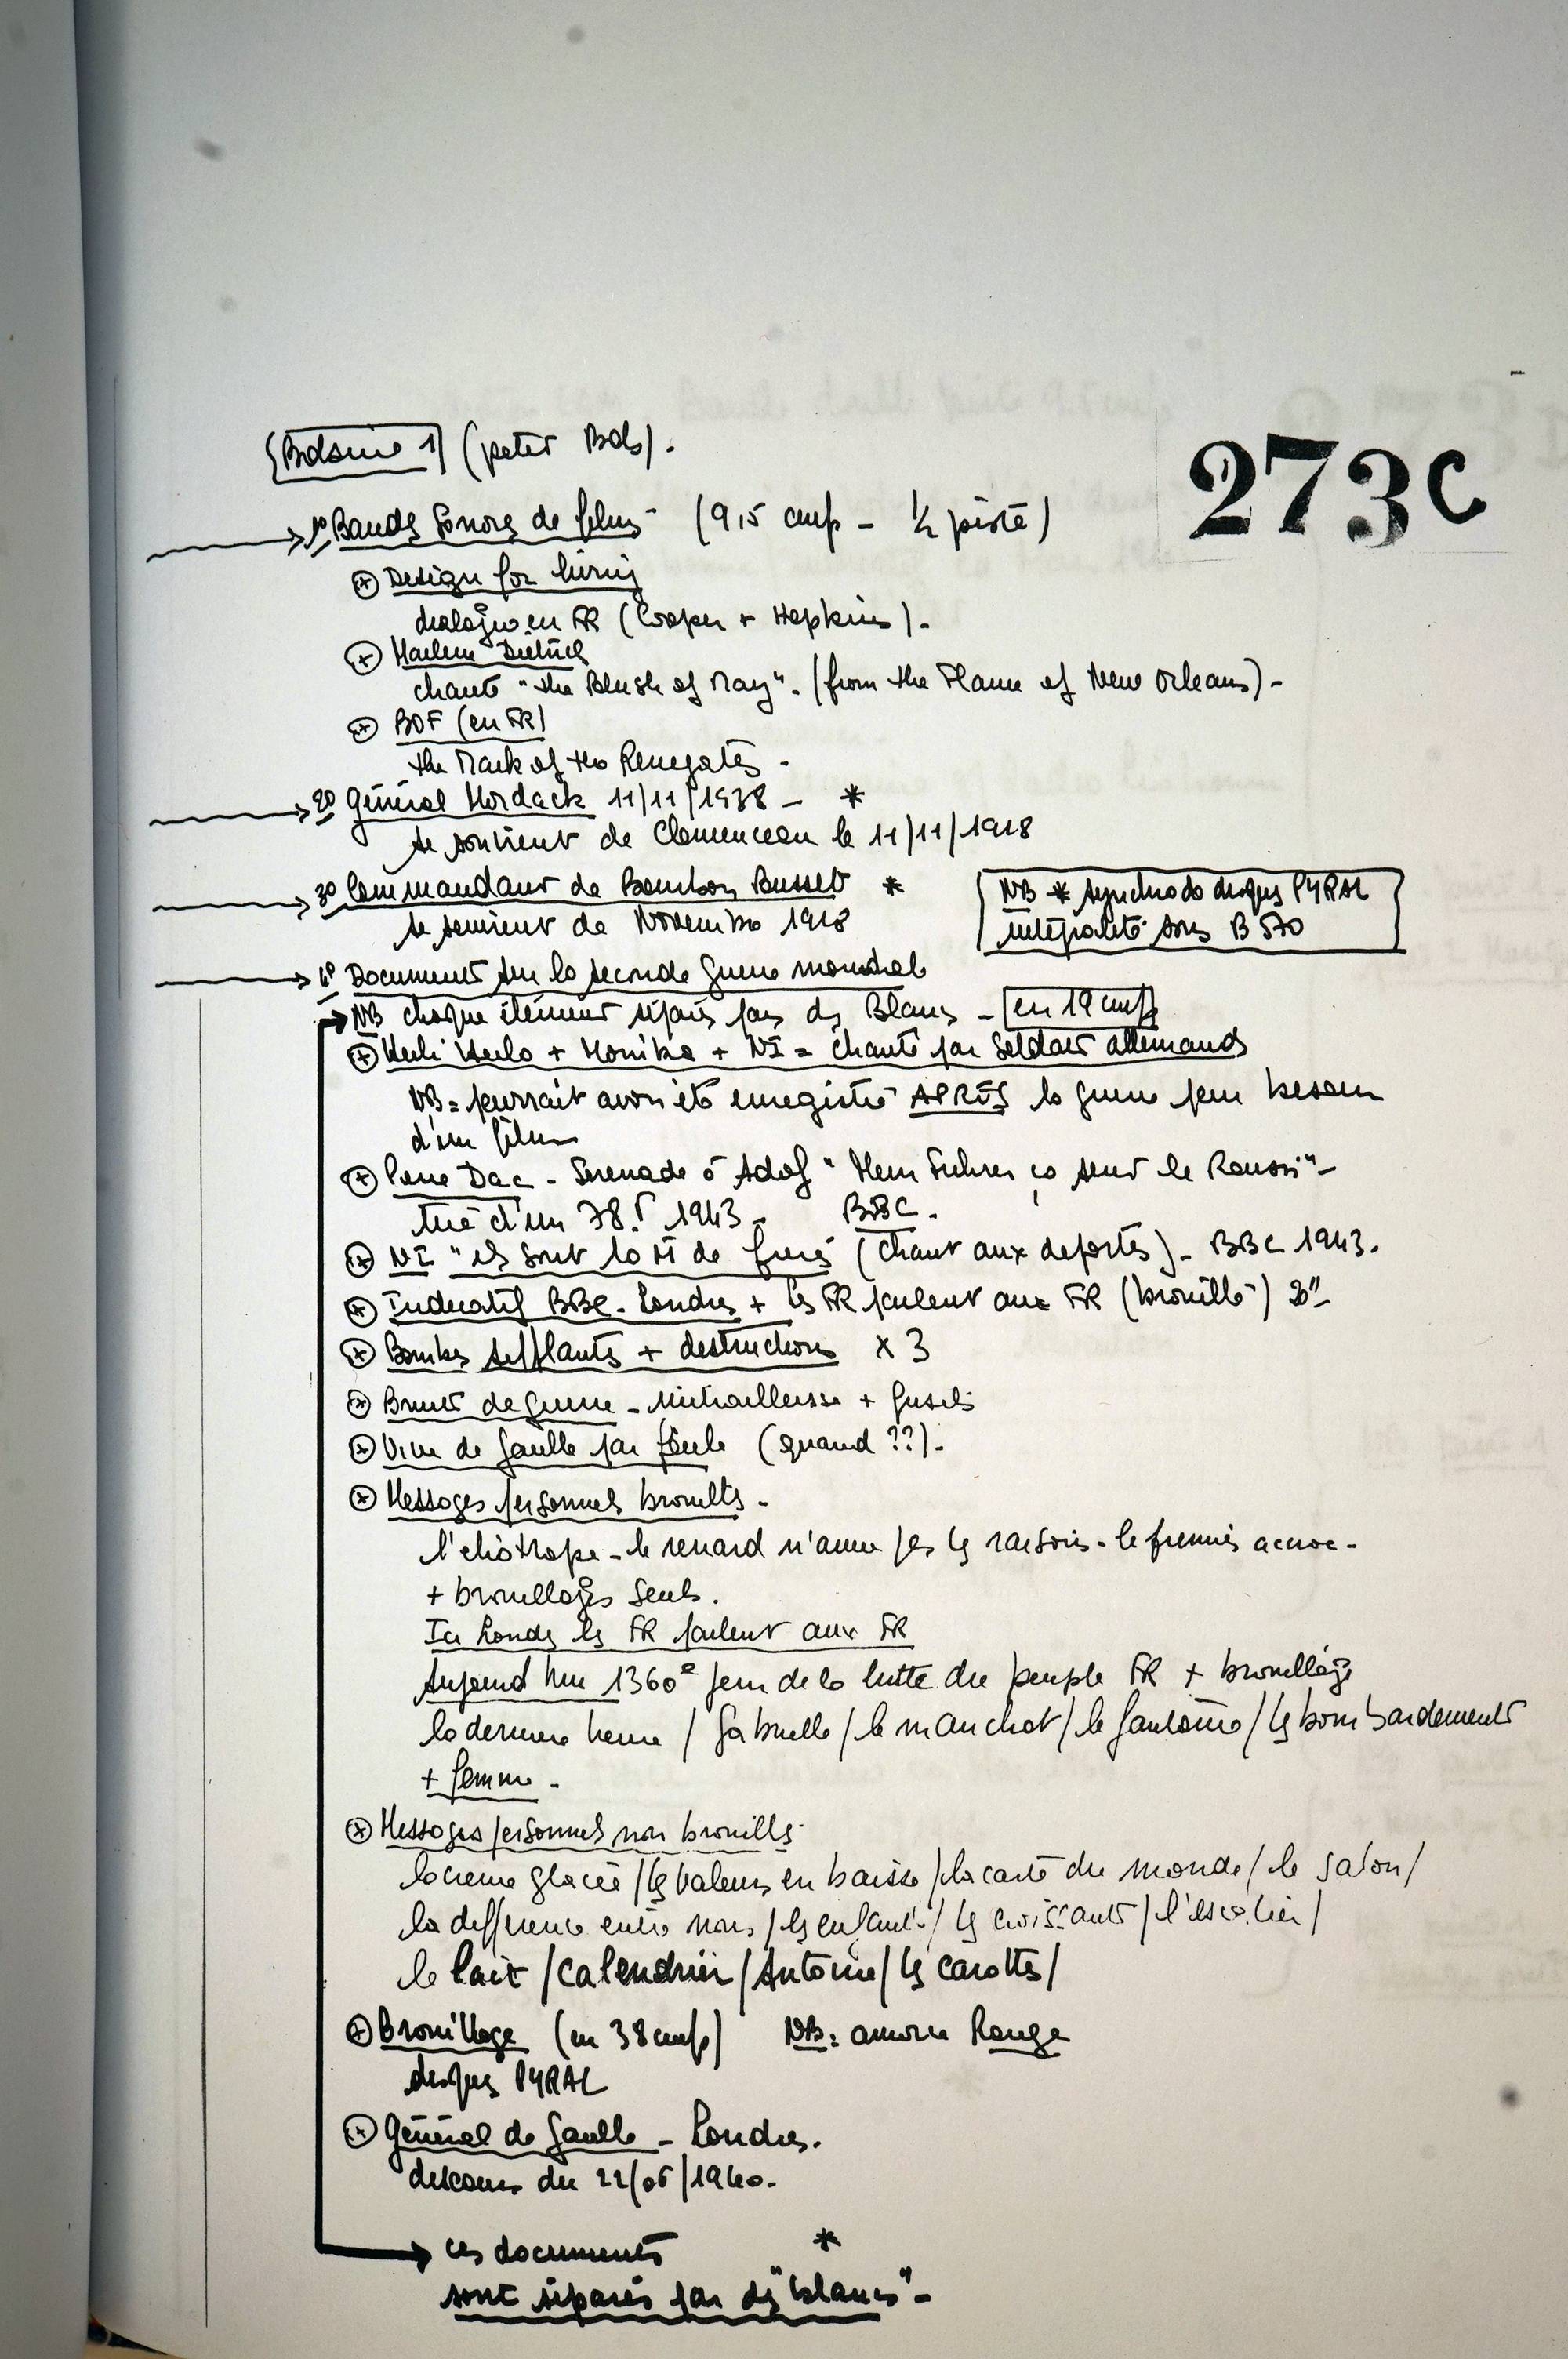 Bdsurie 1 (petit Bds).
273C
1º Bandes Sonores de films - (9,5 cm/s - ½ piste)
⊕ Design for living
dialogue en FR (Cooper + Hopkins).
⊕ Marlene Dietrich
chante "the Blush of May". (from the Flame of New Orleans) -
⊕ BOF (en FR)
the Mark of the Renegates -
2º Général Mordack 11/11/1938 - *
se souvient de Clemenceau le 11/11/1918
3º Commandant de Bourbon Busset *
se souvient de Novembre 1918
NB * disques PYRAL
intégralité sous B 570
4º Documents sur la seconde guerre mondiale
NB chaque élément séparé par des Blancs - en 19 cm/s
⊕ Heili Heilo + Monika + NI = chanté par Soldats allemands
NB = pourrait avoir été enregistré APRÈS la guerre pour besoin
d'un film
⊕ Pierre Dac - Serenade à Adolf "Mein Fuhrer ça sent le Roussi" -
tiré d'un 78.T 1943 - BBC.
⊕ NI "ils sont là de (chant aux déportés) - BBC 1943.
⊕ Indicatif BBC - Londres + les FR parlent aux FR (brouillé) 20"
⊕ Bombes sifflantes + destructions x 3
⊕ Bruits de guerre - Mitrailleuse + fusils
⊕ Vive de Gaulle par foule (quand ??).
⊕ Messages personnels brouillés -
l'eliotrope - le renard n'aime pas les raisins - le premier accroc -
+ brouillages seuls.
Ici Londres les FR parlent aux FR
Aujourd'hui 1360e jour de la lutte du peuple FR + brouillage
la dernière heure / Gabrielle / le manchot / le fantôme / les bombardements
+ femme -
⊕ Messages personnels non brouillés
la creme glacée / les valeurs en baisse / la carte du monde / le salon /
la différence entre nous / les enfants / les croissants / l'escalier /
le lait / calendrier / Antoine / les carottes /
⊕ Brouillage (en 38 cm/s) NB : amorce Rouge
disques PYRAL
⊕ Général de Gaulle - Londres.
discours du 22/06/1940.
ces documents *
sont séparés par des "blancs" -